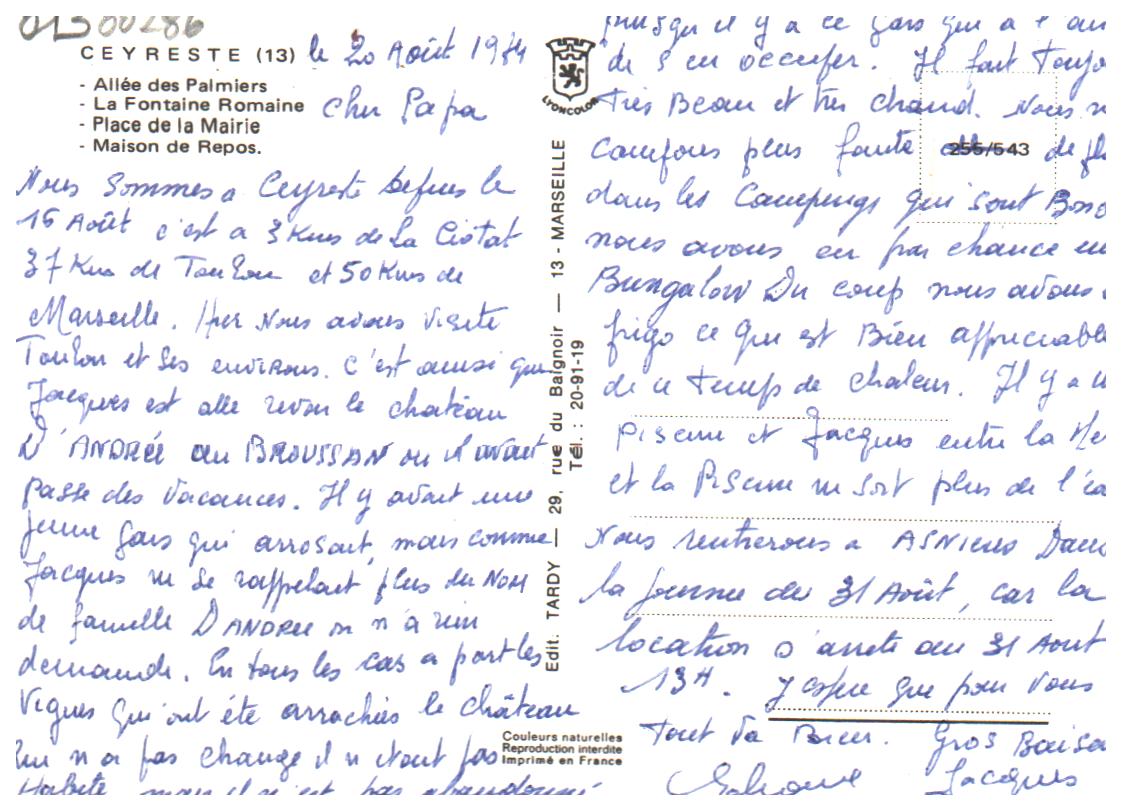 01300286
CEYRESTE (13)
- Allée des Palmiers
- La Fontaine Romaine
- Place de la Mairie
- Maison de Repos.
le 20 Août 1984
Cher Papa
Nous Sommes a Ceyreste depuis le
16 Août c'est a 3 Kms de La Ciotat
37 Kms de Toulon et 50 Kms de
Marseille. Hier Nous avons visite
Toulon et ses environs. C'est ainsi que
Jacques est alle revoir le chateau
D'ANDRÉE au BROUSSAN ou il avait
passe des vacances. Il y avait une
jeune gars qui arrosait, mais comme
Jacques ne se rappelait plus du NOM
de famille D'ANDREE on n'a rien
demande. En tous les cas a part les
Vignes qui ont été arrachées le château
lui n'a pas change il n'etait pas
Habite mais il n'est pas abandonné
LYONCOLOR
Edit. TARDY — 29, rue du Baignoir — 13 - MARSEILLE
Tél. : 20-91-19
Couleurs naturelles
Reproduction interdite
Imprimé en France
puisqu'il y a ce gars qui a l'air
de s'en occuper. Il fait Toujo
Très Beau et très chaud. Nous n
campons plus faute de pl
255/543
dans les Campings qui sont Bond
nous avons eu par chance un
Bungalow Du coup nous avons
frigo ce qui est Bien appreciable
de ce temps de chaleur. Il y a u
piscine et Jacques entre la Me
et la Piscine ne sort plus de l'ea
Nous rentrerons a ASNIERES Dans
la journee du 31 Août, car la
location s'arrete au 31 Aout
13H. J'espere que pour vous
Tout va Bien. Gros Baise
Jacques